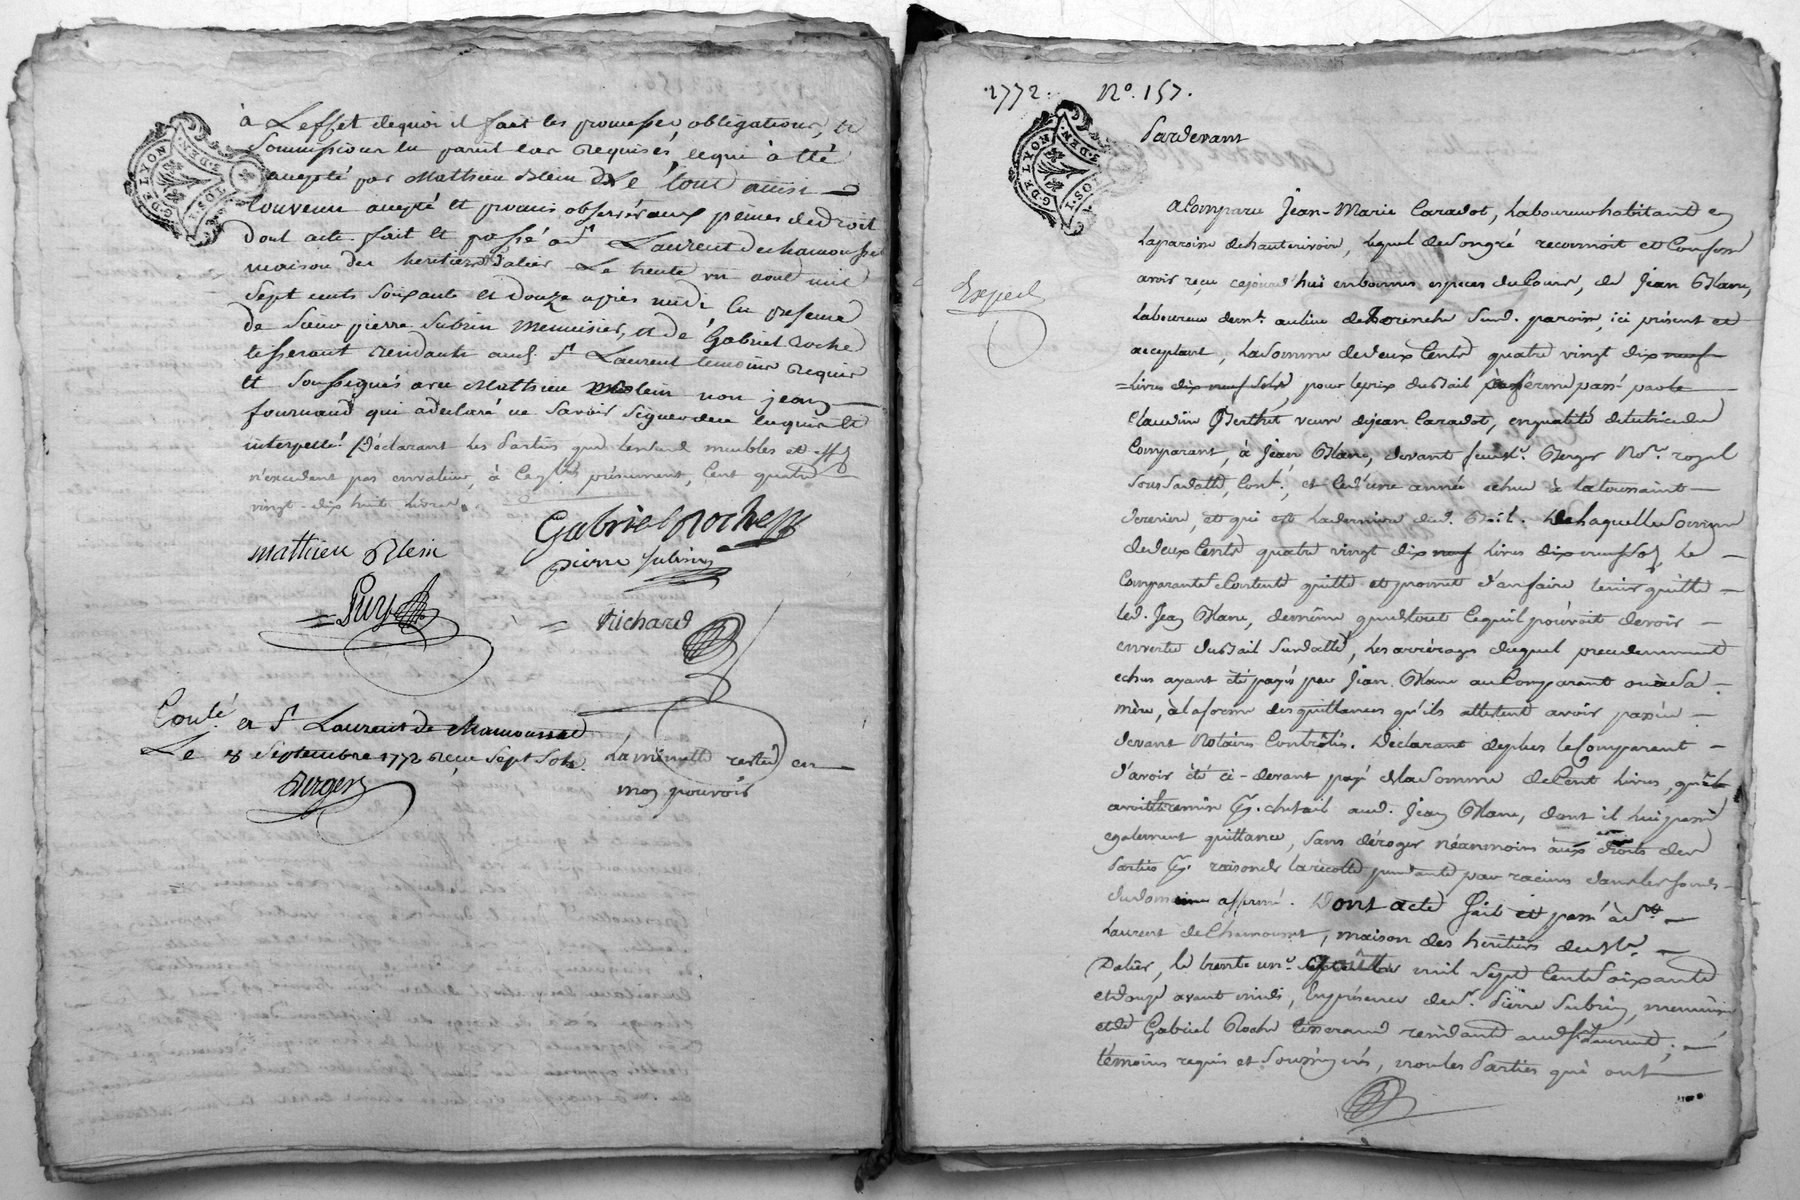 à L'effet dequoi il fait les promesses, obligations, et
Soumissions en pareil cas Requises, cequi à été
accepté par Mathieu Blein tout ainsi
Convenu accepté et promis observer aux peines de droit
dont acte. fait et passé a St Laurent de chamousset
maison des heritiers Dalier Le trente un aout mil
Sept cents soixante et douze après midi En presence
de Sieur pierre Subrin Menuisier, et de Gabriel Roche
tisserant Residants aud. St Laurent temoins Requis
et soussignés avec Mathieu Blein non jean
fournaud qui a declaré ne Savoir Signer de ce enquis et
interpellé. Déclarant les Parties que lesdits meubles et effets
n'excedent pas en valeur, à Ce présument, Cent quatre
vingt-dix huit livres.
Mathieu Blein
Gabriel Roche
pierre Subrin
Puy
Richard
Conté. a St Laurent de chamousset
Le 8 Septembre 1772 Reçu Sept Sols.
Berger
La minutte restée en
mon pouvoir
G. DE LYON
2 S. DEN.
1772. No. 157.
G. DE LYON
2 S. DEN.
Pardevant
Exped
a Comparu Jean-Marie Caradot, Laboureur habitant en
La paroisse de hauterivoire, lequel de Son gré reconnoit et Confesse
avoir reçu cejourd'hui en bonnes espèces de Cours, de Jean Blanc,
Laboureur demt. au lieu de Susd. paroisse, ici présent et
acceptant, La Somme de deux Cents quatre vingt dix neuf
livres dix neuf Sols, pour le prix du Bail à ferme passé par
Claudine Berthet veuve de jean Caradot, en qualité de tutrice du
Comparant, à Jean Blanc, devant feu Me. Berger Nore. royal
Sous Sa datte, Conté., et ce d'une année echue à la toussaint
derniere, et qui est La derniere dud. Bail. De Laquelle Somme
de deux Cents quatre vingt dix neuf Livres dix neuf Sols, Le
Comparant Contente quitte et promet d'en faire tenir quitte
Led. Jean Blanc, de même que de tout Ce qu'il pouvoit devoir
en vertu du Bail Susdatté, Les arrérages duquel precedemment
echus ayant été payés par Jean Blanc au Comparant ou à Sa
mère, à la forme des quittances qu'ils attestent avoir passées
devant Notaires Contrôlées. Déclarant de plus le Comparant
d'avoir été ci-devant payé de La Somme de Cent Livres, qu'il
avoit remise aud. Jean Blanc, dont il Lui passe
egalement quittance, Sans déroger néanmoins aux droits des
Parties raison de la récolte pendante par racines dans les fonds
du domaine affermé. Dont acte fait et passé à St.
Laurent de Chamousset, maison des héritiers de Me.
Dalier, le trente un aoust mil Sept Cent Soixante
et douze avant midi, En présence de Sr. Pierre Subrin, menuisier
et de Gabriel Roche tisserand résidants aud. St. Laurent;
témoins requis et Soussignés, non les Parties qui ont